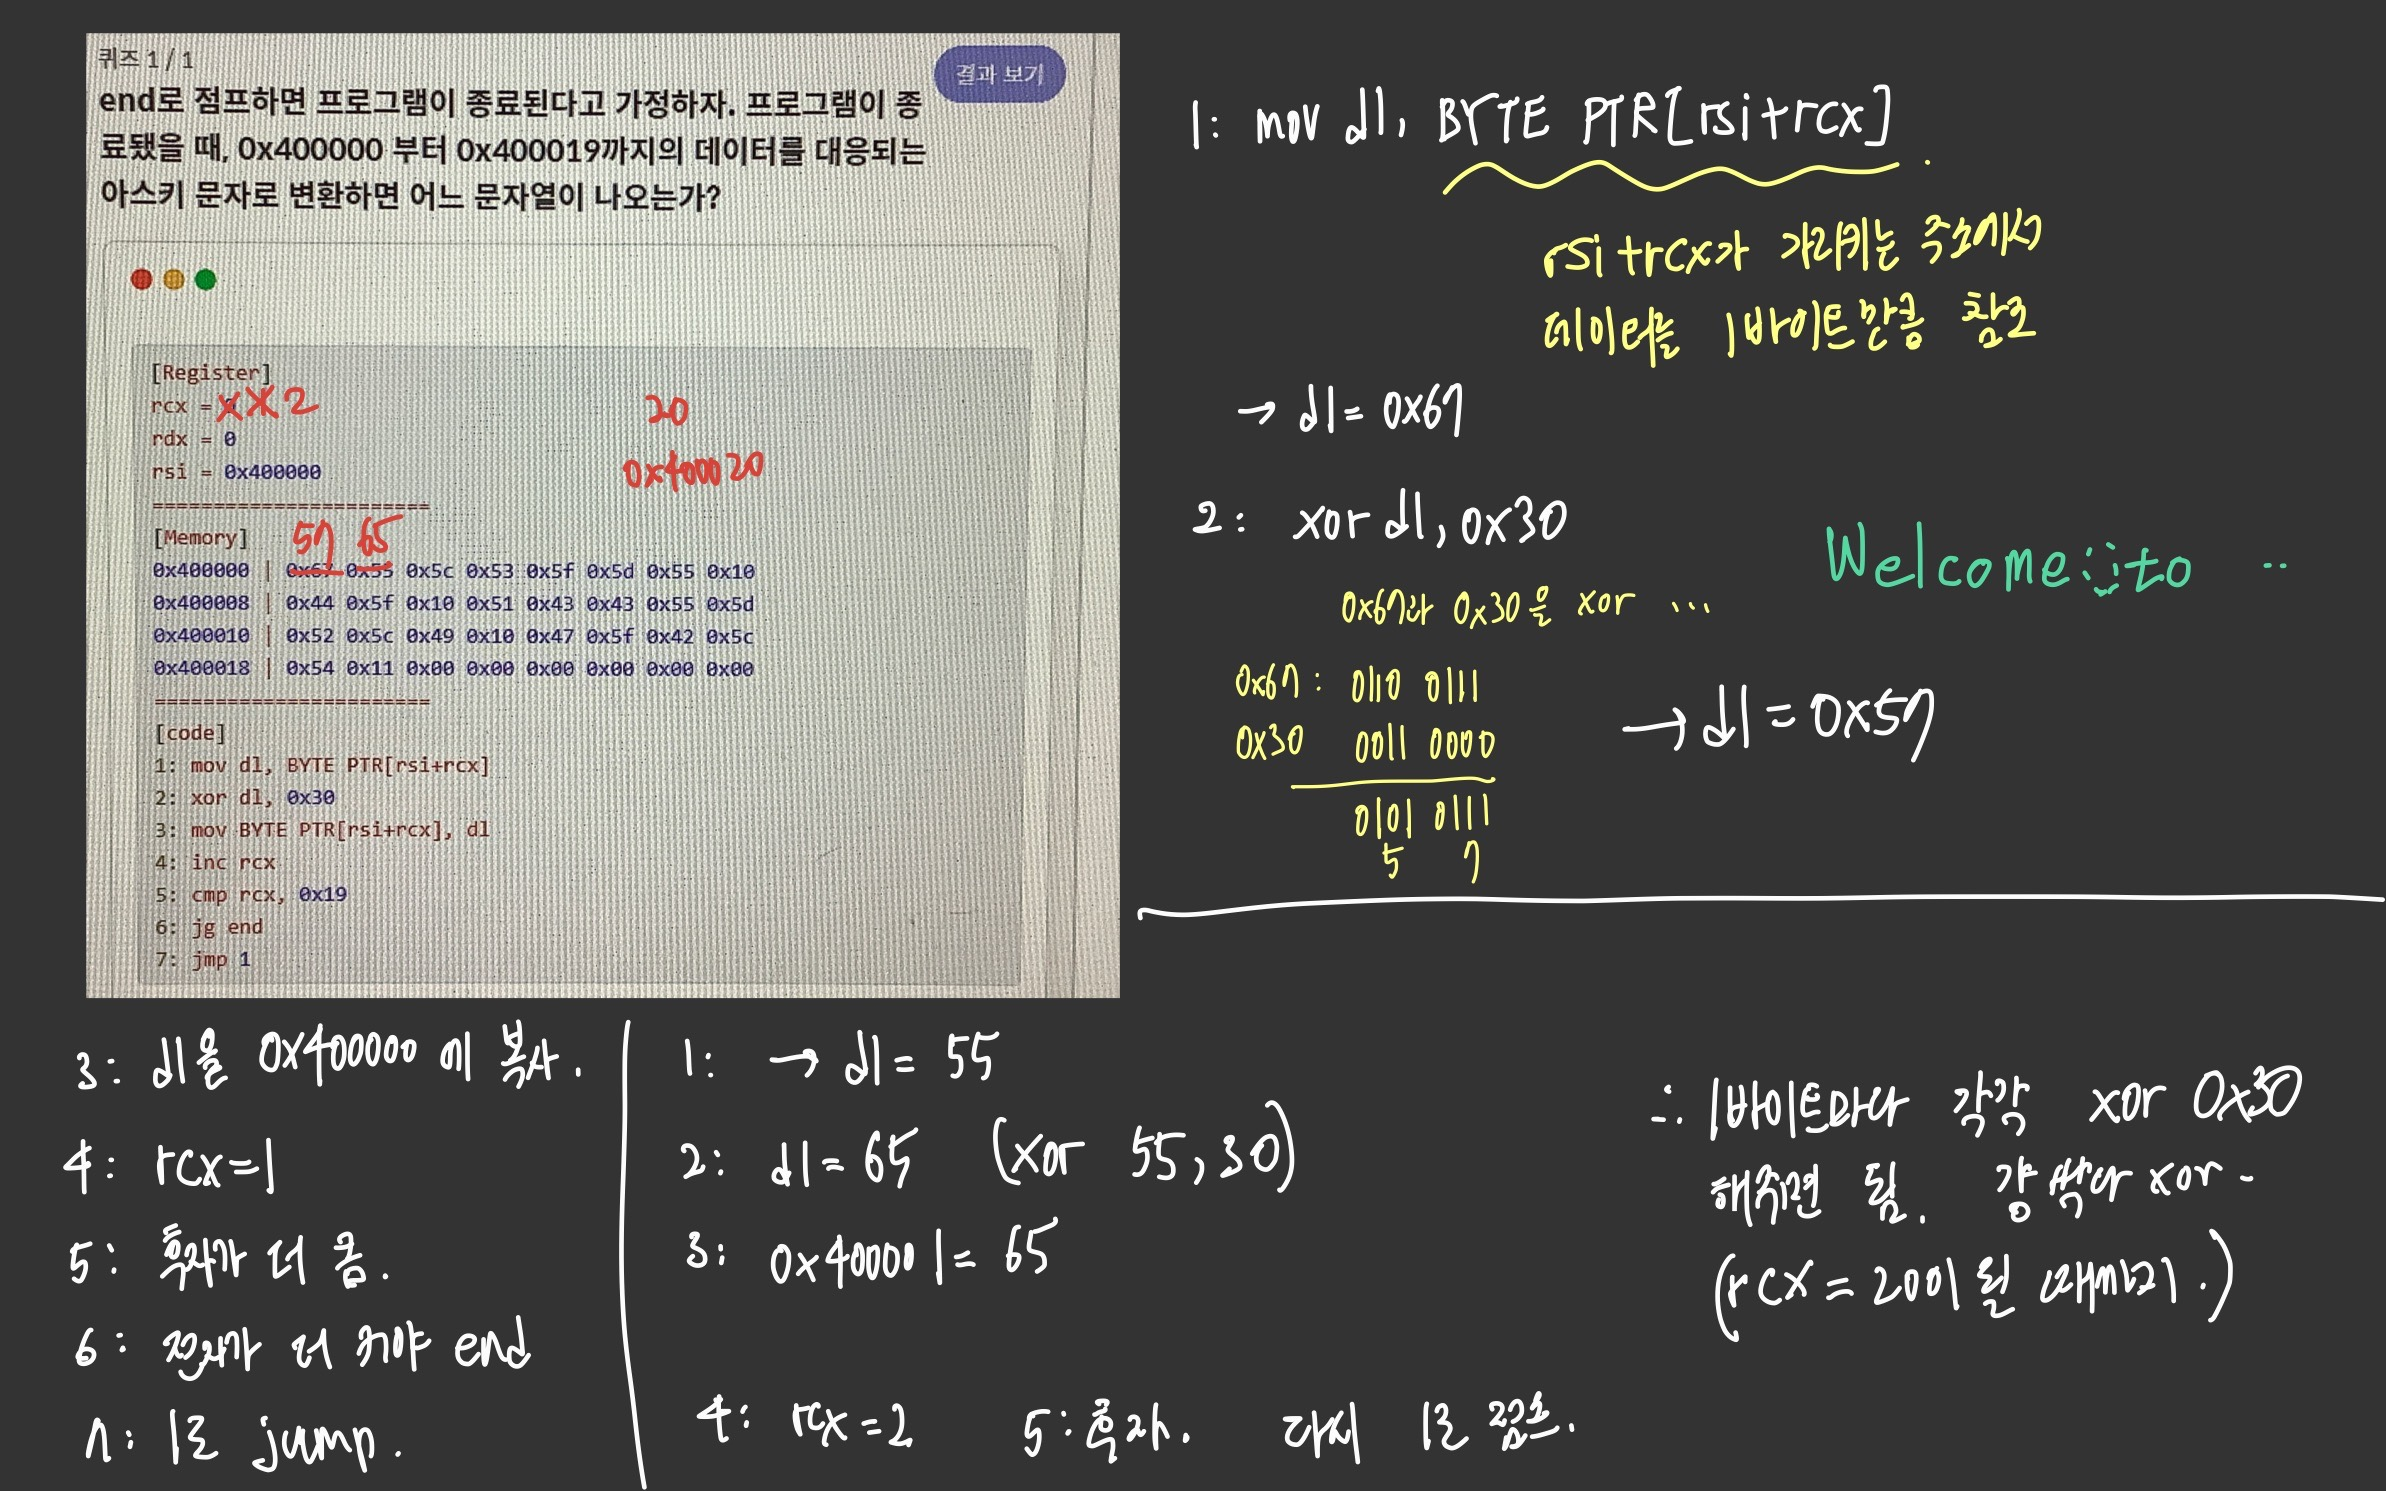 퀴즈 1 / 1
결과 보기
end로 점프하면 프로그램이 종료된다고 가정하자. 프로그램이 종
료됐을 때, 0x400000 부터 0x400019까지의 데이터를 대응되는
아스키 문자로 변환하면 어느 문자열이 나오는가?
[Register]
rcx = 2
rdx = 0
rsi = 0x400000
20
0x400020
=======================
[Memory]
57 65
0x400000 | 0x67 0x55 0x5c 0x53 0x5f 0x5d 0x55 0x10
0x400008 | 0x44 0x5f 0x10 0x51 0x43 0x43 0x55 0x5d
0x400010 | 0x52 0x5c 0x49 0x10 0x47 0x5f 0x42 0x5c
0x400018 | 0x54 0x11 0x00 0x00 0x00 0x00 0x00 0x00
=======================
[code]
1: mov dl, BYTE PTR[rsi+rcx]
2: xor dl, 0x30
3: mov BYTE PTR[rsi+rcx], dl
4: inc rcx
5: cmp rcx, 0x19
6: jg end
7: jmp 1
1: mov dl, BYTE PTR[rsi+rcx]
rsi+rcx가 가리키는 주소에서
데이터를 1바이트만큼 참조
→ dl = 0x67
2: xor dl, 0x30
0x67과 0x30을 xor ...
0x67: 0110 0111
0x30 0011 0000
0101 0111
5 7
→ dl = 0x57
Welcome to ..
3: dl을 0x400000에 복사.
4: rcx=1
5: 후자가 더 큼.
6: 전자가 더 커야 end
7: 1로 jump.
1: → dl = 55
2: dl = 65 (xor 55, 30)
3: 0x400001 = 65
4: rcx=2 5: 후자. 다시 1로 점프.
∴ 1바이트마다 각각 xor 0x30
해주면 됨. 걍 싹다 xor..
(rcx = 20이 될 때까지.)